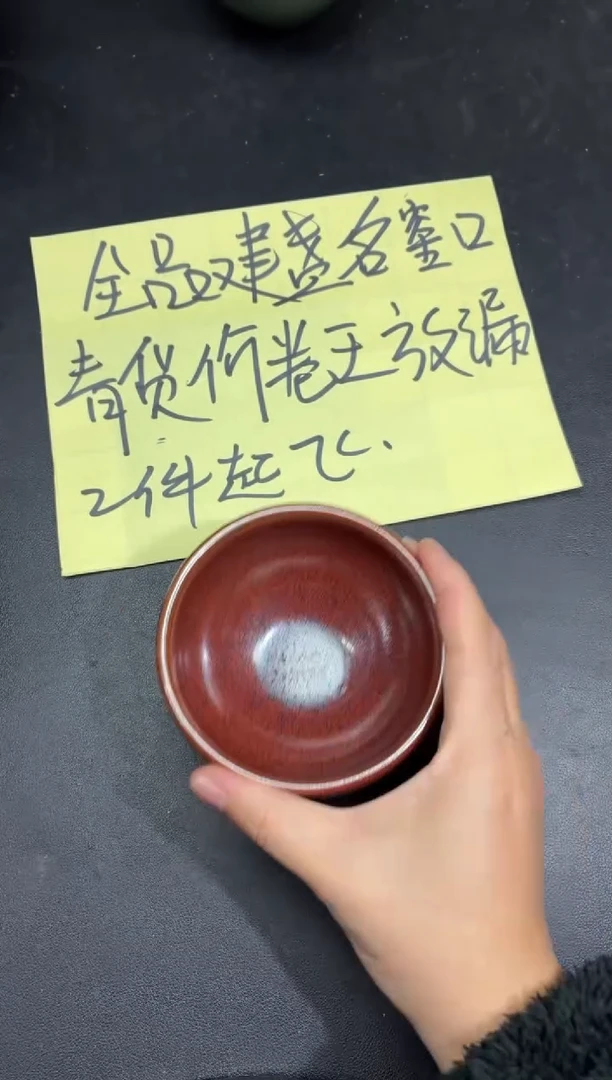 全品建盏名窑口
青货价卷王放漏
2件起飞.